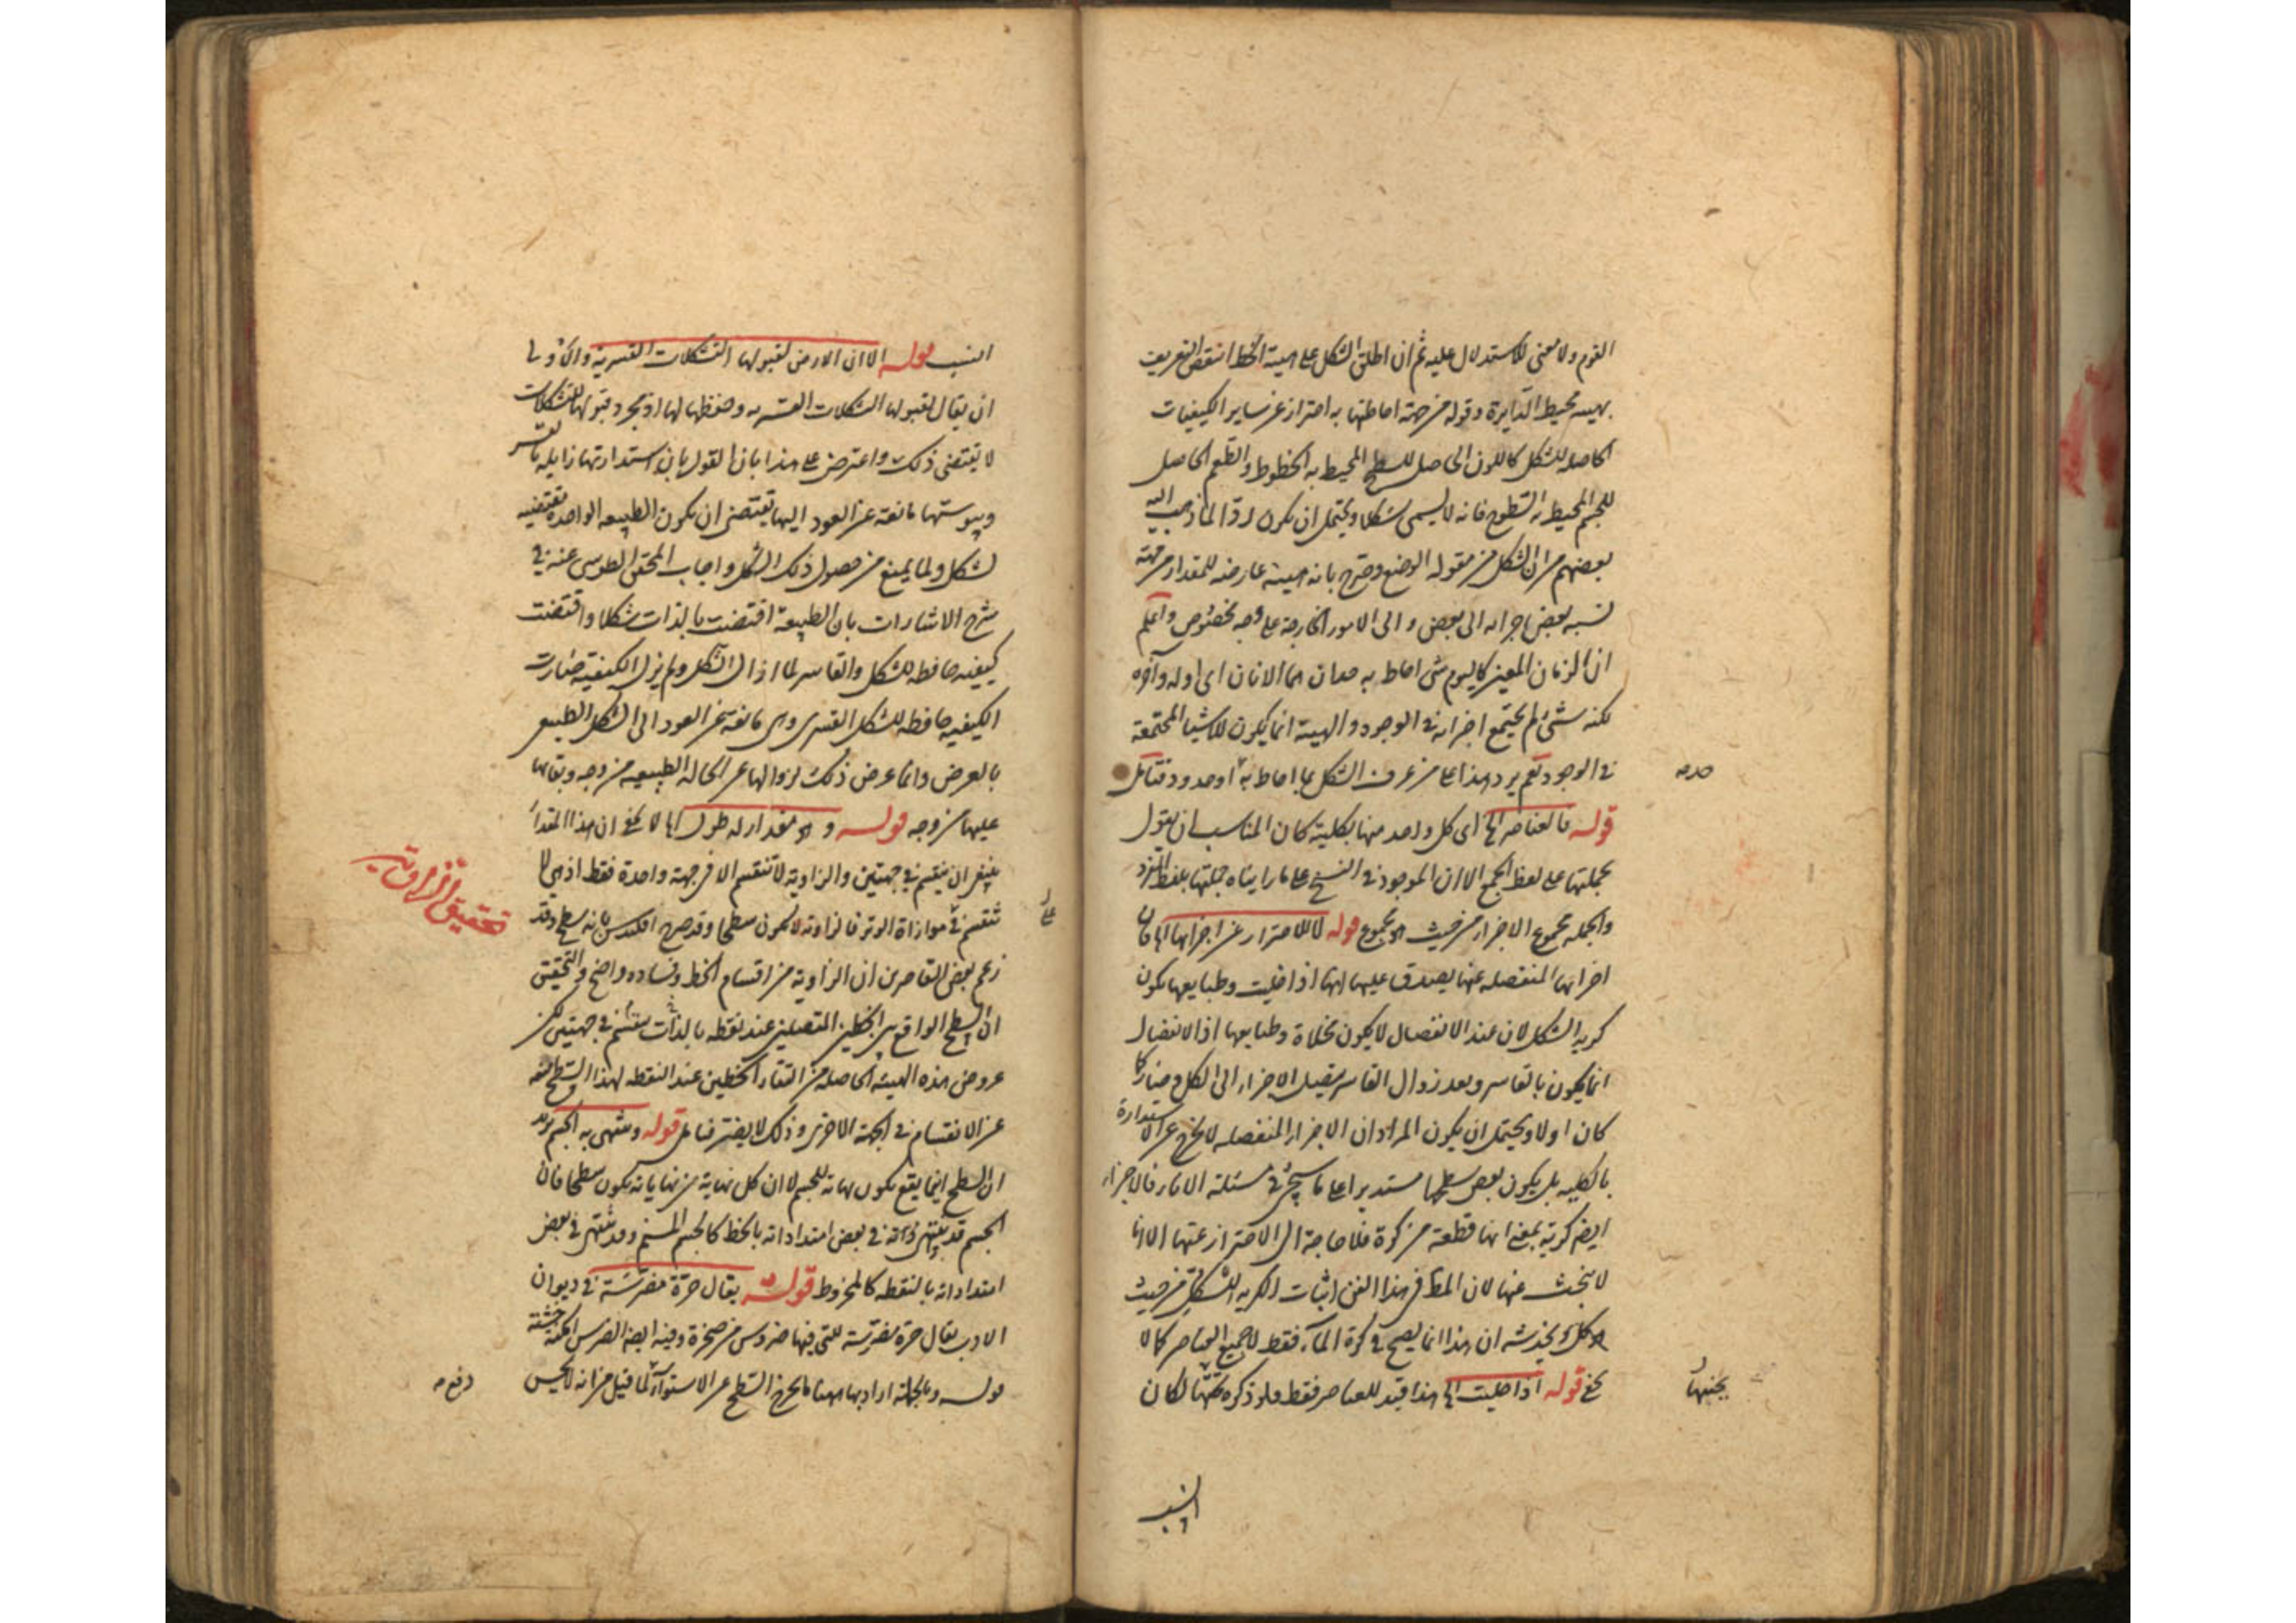 القوم ولا معنى للاستدلال عليه ثم ان اطلق الشكل على هيئة الخط انتقض التعريف
بهيئة محيط الدايرة وقوله من جهة احاطتها به احتراز عن ساير الكيفيات
الحاصله للشكل كاللون الحاصل للسطح المحيط به الخطوط والطعم الحاصل
للجسم المحيط به السطوح فانه لا يسمى شكلا ويحتمل ان يكون ردّا لما ذهب اليه
بعضهم من ان الشكل من مقولة الوضع وصرح بانه هيئة عارضه للمقدار من جهة
نسبه بعض اجزائه الى بعض والى الامور الخارجة على وجه مخصوص واعلم
ان الزمان المعين كاليوم شئ احاط به حدان هما الآنان اى اوله وآخره
لكنه شئ لم يجتمع اجزائه فى الوجود والهيئة انما يكون للاشيا المجتمعة
فى الوجود نعم يرد هذا على من عرف الشكل بما احاط به حد او حدود فتأمل
قوله فالعناصر الخ اى كل واحد منها بكليته كان المناسب ان يقول
بجملتها على لفظ الجمع الا ان الموجود فى النسخ على ما رايناه جملتها بلفظ المفرد
والجمله مجموع الاجزاء من حيث هو مجموع قوله لا للاحتراز عن اجزائها الخ فان
اجزائها المنفصله عنها يصدق عليها انها اذا خليت وطبايعها يكون
كريه الشكل لان عند الانفصال لا يكون مخلاة وطبايعها اذ الانفصال
انما يكون بالقاسر وبعد زوال القاسر يتصل الاجزاء الى الكل وصار كما
كان اولا ويحتمل ان يكون المراد ان الاجزاء المنفصله لا تخرج عن الاستدارة
بالكليه بل يكون بعض سطحها مستديرا على ما سيجئ فى مسئلة الاناء فالاجزاء
ايضا كرية بمعنى انها قطعة من كرة فلا حاجة الى الاحتراز عنها الا انا
لا نبحث عنها لان المط فى هذا الفن اثبات الكريه للشكل من حيث
هو كل ويخدشه ان هذا انما يصح فى كرة الماء فقط لا جميع العناصر كما لا
يخفى قوله اذا خليت الخ هذا قيد للعناصر فقط فلو ذكره بجنبها لكان
انسب
بجنبها
انسب قوله الا ان الارض لقبولها التشكلات القسرية والاولى
ان يقال لقبولها التشكلات القسريه وحفظها لها اذ مجرد قبولها للتشكلات
لا يقتضى ذلك واعترض على هذا بان القول بان استدارتها زايله بقاسر
ويبوستها مانعة عن العود اليها يقتضى ان يكون الطبيعه الواحدة مقتضيه
لشكل ولما يمنع من حصول ذلك الشكل واجاب المحقق الطوسى عنه فى
شرح الاشارات بان الطبيعة اقتضت بالذات شكلا واقتضت
كيفيه حافظه للشكل والقاسر لما ازال الشكل ولم يزل الكيفية صارت
الكيفيه حافظه للشكل القسرى وهى مانعه عن العود الى الشكل الطبيعى
بالعرض وانما عرض ذلك لزوالها عن الحاله الطبيعيه من وجه وبقائها
عليها من وجه قوله وهو مقدار له طول الخ لا يخفى ان هذا المقدار
ينبغى ان ينقسم فى جهتين والزاوية لا تنقسم الا فى جهة واحدة فقط اذ هى لا
تنقسم فى موازاة الوتر فالزاويه لا يكون سطحا وقد صرح اقليدس بانه سطح وقد
زعم بعض القاصرين ان الزاوية من اقسام الخط وفساده واضح والتحقيق
ان السطح الواقع بين الخطين المتصلين عند نقطه بالذات منقسم فى جهتين لكن
عروض هذه الهيئه الحاصله من التقاء الخطين عند النقطه لهذا السطح
عن الانقسام فى الجهة الاخرى وذلك لا يضر فتامل قوله وينتهى به الجسم يريد
ان السطح انما يقع يكون نهاية للجسم لا ان كل نهاية من نهاياته يكون سطحا فان
الجسم قد ينتهى ذاته فى بعض امتداداته بالخط كالجسم المسنم وقد ينتهى فى بعض
امتداداته بالنقطه كالمخروط قوله يقال حرة مضرسة فى ديوان
الادب يقال حرة مضرسة للتى فيها ضروس من صخرة وفيه ايضا الضرس اكمة خشنة
قوله وبالجملة اراد بها ههنا ما يخرج السطح عن الاستواء لما قيل من انه لا يحس
تحقيق الزاوية